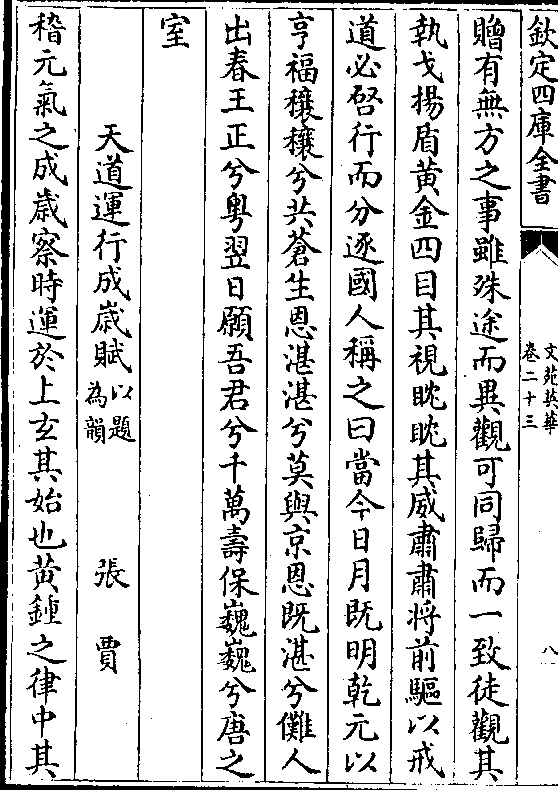 欽定四庫全書
文苑英華
卷二十三
八
贈有無方之事雖殊途而異觀可同歸而一致徒觀其
執戈揚盾黃金四目其視眈眈其威肅肅将前驅以戒
道必啓行而分逐國人稱之曰當今日月既明乾元以
亨福穰穰兮共蒼生恩湛湛兮莫與京恩既湛兮儺人
出春王正兮粤翌日願吾君兮千萬壽保巍巍兮唐之
室
天道運行成歲賦以題為韻 張賈
稽元氣之成歲察時運於上玄其始也黄鍾之律中其